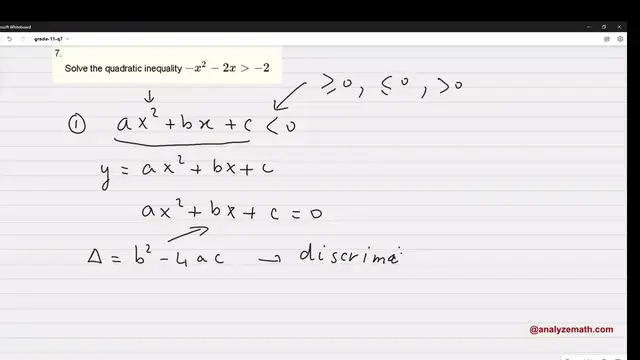 Microsoft Whiteboard
grade-11-q7
7.
Solve the quadratic inequality −x² − 2x > −2
≥0, ≤0, >0
① ax² + bx + c < 0
y = ax² + bx + c
ax² + bx + c = 0
Δ = b² − 4ac → discrima
@analyzemath.com